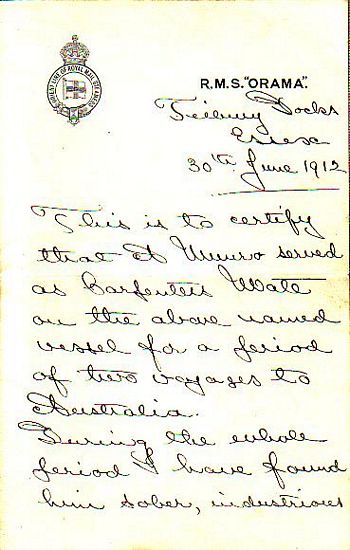 ORIENT LINE OF ROYAL MAIL STEAMERS
R.M.S. "ORAMA".
Tilbury Docks
Essex
30th June 1912
This is to certify
that A Munro served
as Carpenters Mate
on the above named
vessel for a period
of two voyages to
Australia.
During the whole
period I have found
him sober, industrious